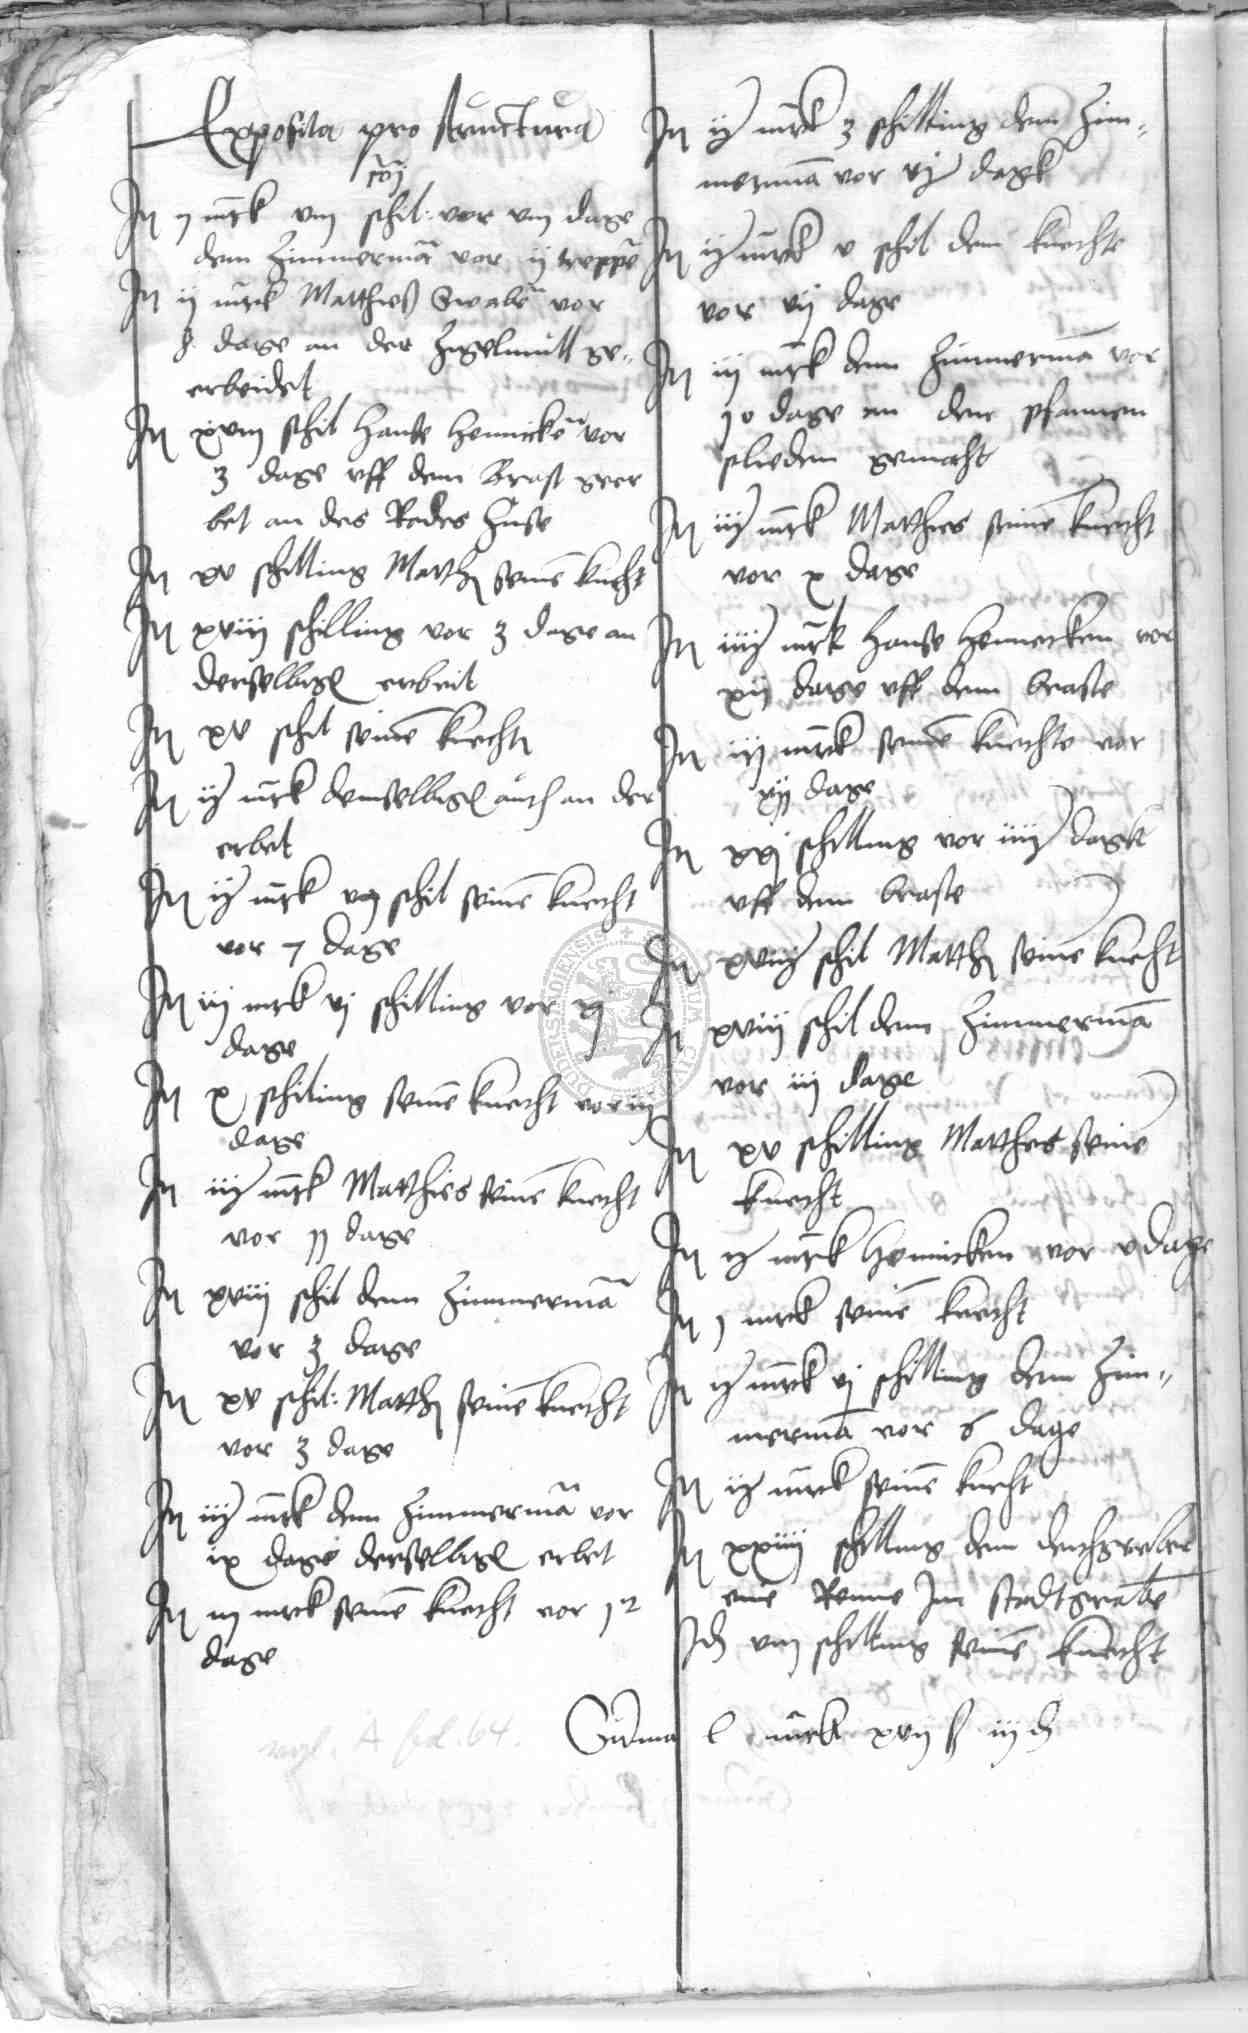 Exposita pro structura
It 1 mrck viij schil: vor viij dage
dem Zimmermā vor ij treppē
It ij mrck Matthieß Swabeñ vor
8 dage an der Zigelmull ge-
erbeidet
It xviij schil Hanse Hennickeñ vor
3 dage uff dem brast geer
bet an des Rades Huse
It xv schilling Matth seinē knecht
It xviij schilling vor 3 dage an
derselbigē erbeit
It xv schil seinē knecht
It ij mrck demselbigē auch an der
erbet
It ij mrck schil seinē knecht
vor 7 dage
It iij mrck vj schilling vor xj
dage
It x schiling seinē knecht vor iij
dage
It iij mrck Matthies seinē knecht
vor 11 dage
It xviij schil dem Zimmermā
vor 3 dage
It xv schil: Matth seinē knecht
vor 3 dage
It iij mrck dem Zimmermā vor
ix dage derselbigē erbet
It iij mrck seinē knecht vor 12
dage
It ij mrck 3 schilling dem Zim-
mermā vor vij dage
It ij mrck v schil dem knechte
vor vij dage
It iij mrck dem Zimmermā vor
10 dage an dene pfannen
slieden gemacht
It iij mrck Matthies seinē knecht
vor x dage
It iiij mrck Hanse Hennecken vor
xij dage uff dem braste
It iij mrck seinē knechte vor
xij dage
It xxj schilling vor iiij dage
uff dem braste
It xviij schil Matth seinē knecht
It xviij schil dem Zimmermā
vor iij dage
It xv schilling Matthes seinē
knecht
It ij mrck Hennicken vor v dage
It 1 mrck seinē knecht
It ij mrck vj schilling dem Zim-
mermā vor 6 dage
It ij mrck seinē knecht
It xxiiij schilling dem dichgreber
eine Renne Im stadtgrabē
It viij schilling seinē knecht
Suma l mrck xvij ß iij d
vgl. A fol. 64.